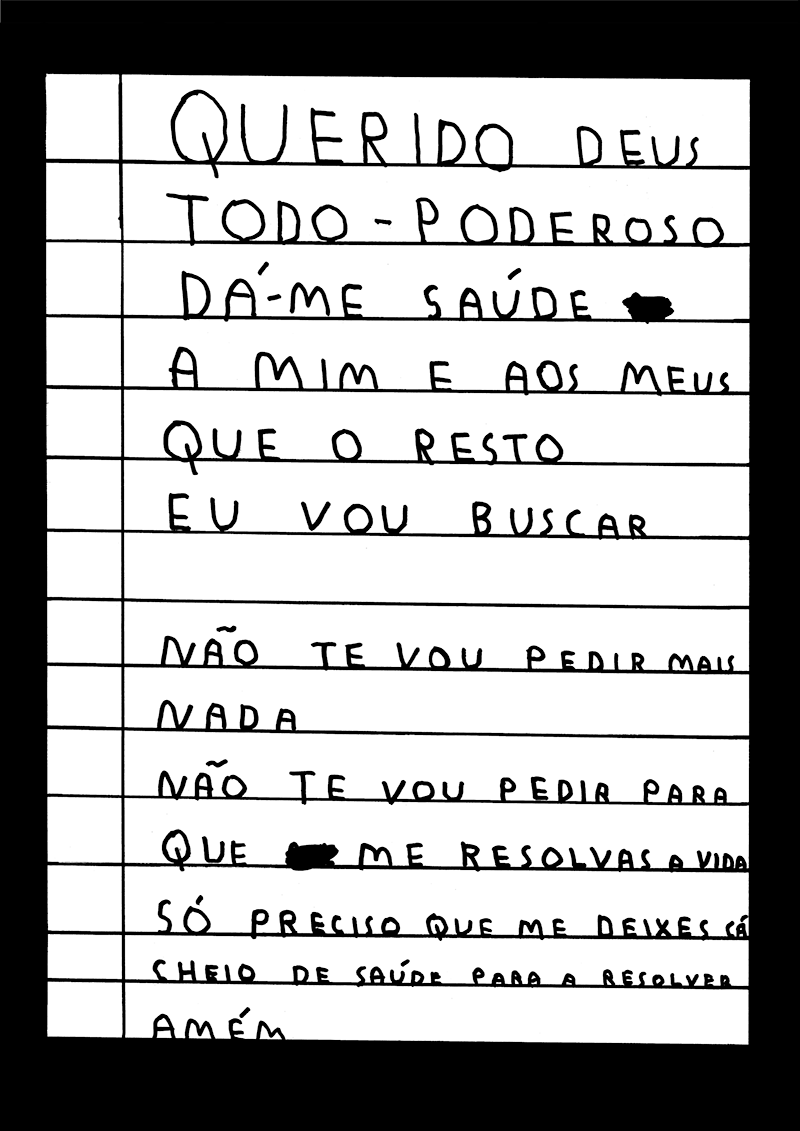 QUERIDO DEUS
TODO-PODEROSO
DÁ-ME SAÚDE
A MIM E AOS MEUS
QUE O RESTO
EU VOU BUSCAR
NÃO TE VOU PEDIR MAIS
NADA
NÃO TE VOU PEDIR PARA
QUE ME RESOLVAS A VIDA
SÓ PRECISO QUE ME DEIXES CÁ
CHEIO DE SAÚDE PARA A RESOLVER
AMÉM